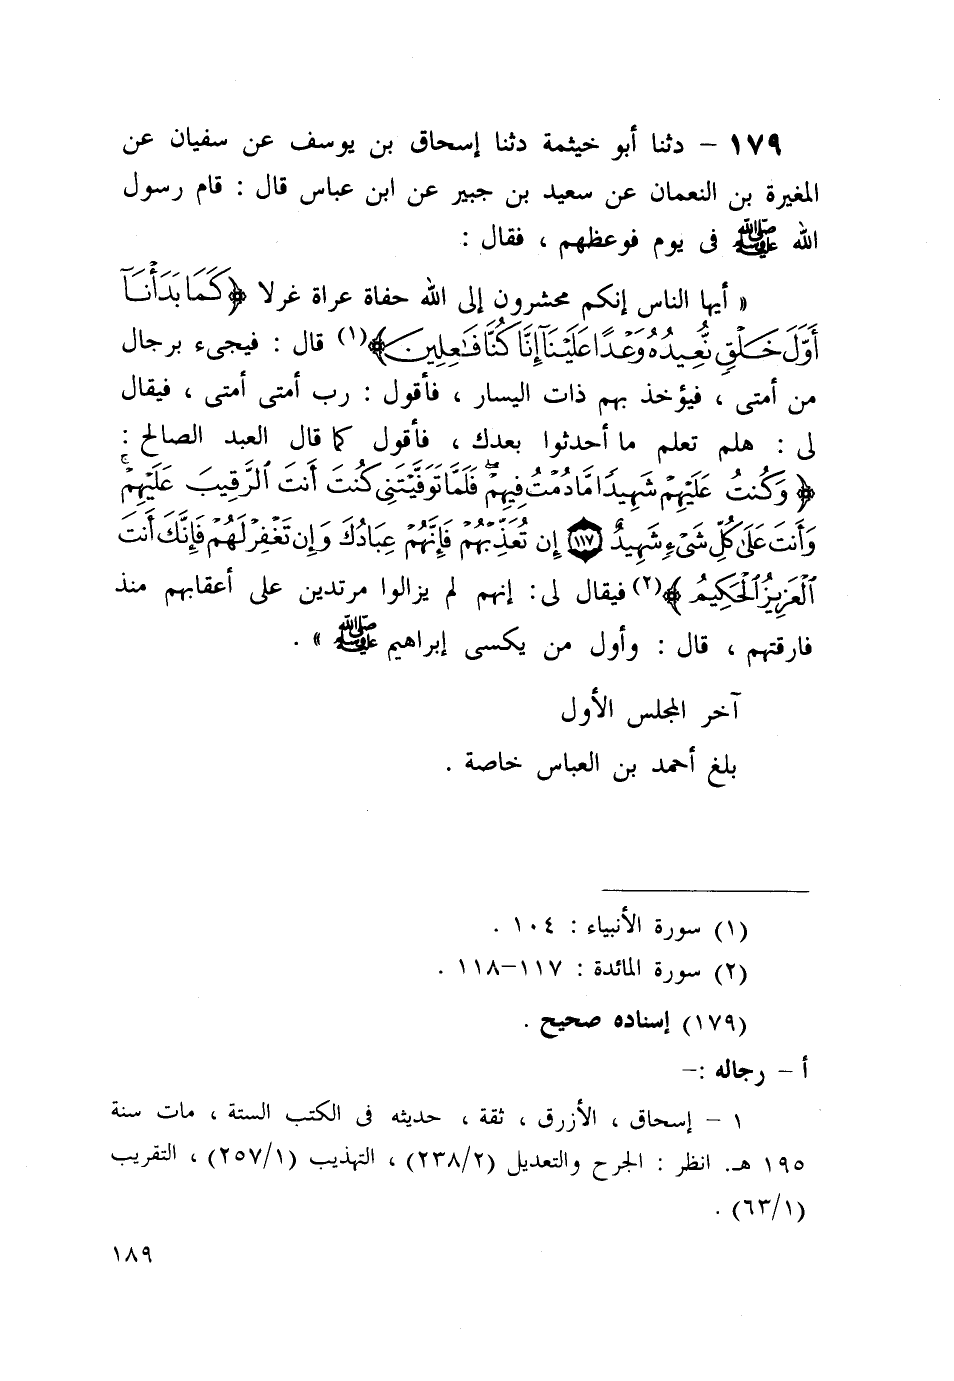 ١٧٩ – دثنا أبو خيثمة دثنا إسحاق بن يوسف عن سفيان عن
المغيرة بن النعمان عن سعيد بن جبير عن ابن عباس قال : قام رسول
الله ﷺ فى يوم فوعظهم ، فقال :
« أيها الناس إنكم محشرون إلى الله حفاة عراة غرلا ﴿ كَمَا بَدَأْنَآ
أَوَّلَ خَلْقٍ نُّعِيدُهُ وَعْدًا عَلَيْنَآ إِنَّا كُنَّا فَٰعِلِينَ ﴾(١) قال : فيجىء برجال
من أمتى ، فيؤخذ بهم ذات اليسار ، فأقول : رب أمتى أمتى ، فيقال
لى : هلم تعلم ما أحدثوا بعدك ، فأقول كما قال العبد الصالح :
﴿ وَكُنتُ عَلَيْهِمْ شَهِيدًا مَّا دُمْتُ فِيهِمْ ۖ فَلَمَّا تَوَفَّيْتَنِى كُنتَ أَنتَ ٱلرَّقِيبَ عَلَيْهِمْ ۚ
وَأَنتَ عَلَىٰ كُلِّ شَىْءٍ شَهِيدٌ ١١٧ إِن تُعَذِّبْهُمْ فَإِنَّهُمْ عِبَادُكَ وَإِن تَغْفِرْ لَهُمْ فَإِنَّكَ أَنتَ
ٱلْعَزِيزُ ٱلْحَكِيمُ ﴾(٢) فيقال لى: إنهم لم يزالوا مرتدين على أعقابهم منذ
فارقتهم ، قال : وأول من يكسى إبراهيم ﷺ » .
آخر المجلس الأول
بلغ أحمد بن العباس خاصة .
(١) سورة الأنبياء : ١٠٤ .
(٢) سورة المائدة : ١١٧–١١٨ .
(١٧٩) إسناده صحيح .
أ – رجاله :–
١ – إسحاق ، الأزرق ، ثقة ، حديثه فى الكتب الستة ، مات سنة
١٩٥ هـ. انظر : الجرح والتعديل (٢٣٨/٢) ، التهذيب (٢٥٧/١) ، التقريب
(٦٣/١) .
١٨٩